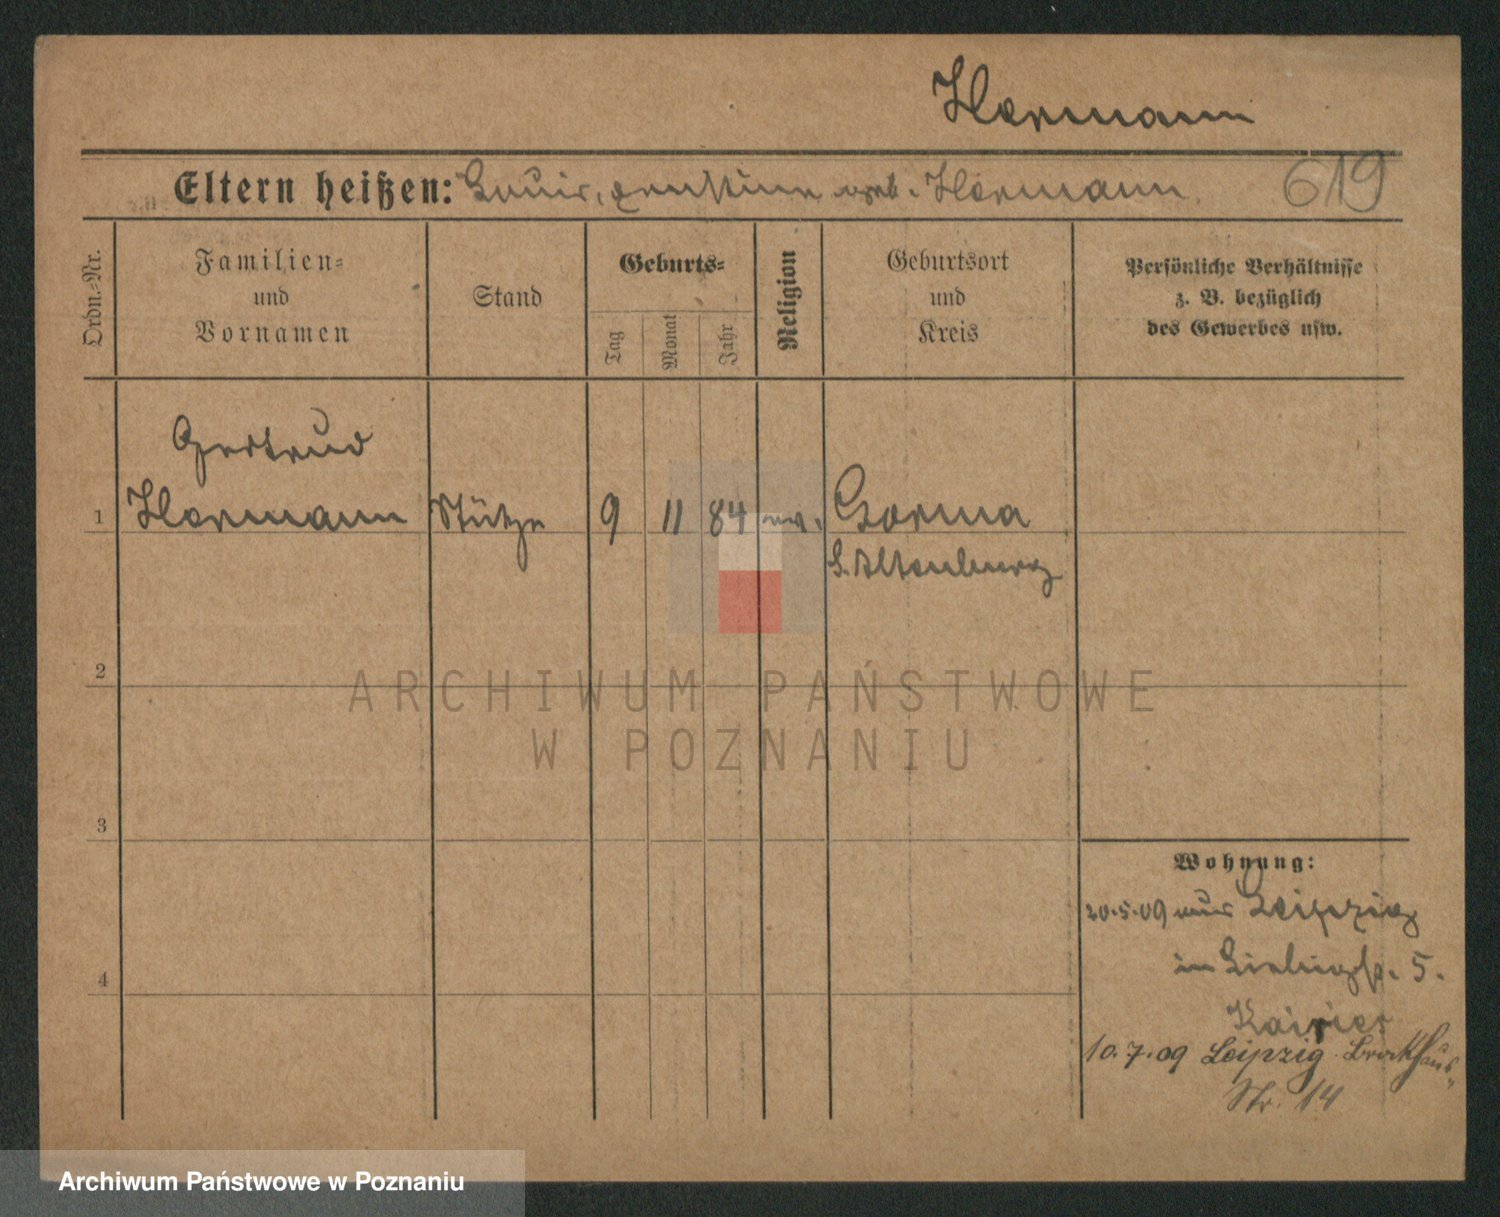 Hermann
Eltern heißen: Louis, Ernstine geb. Hermann. 619
Ordn.-Nr.
Familien-
und
Vornamen
Stand
Geburts-
Tag
Monat
Jahr
Religion
Geburtsort
und
Kreis
Persönliche Verhältnisse
z. B. bezüglich
des Gewerbes usw.
Gertrud
1 Hermann Stütze 9 11 84 ev. Gorma
S. Altenburg
2
3
4
Wohnung:
20.5.09 aus Leipzig
in Liebigstr. 5.
10.7.09 Leipzig Brockhaus-
Str. 14
ARCHIWUM PAŃSTWOWE
W POZNANIU
Archiwum Państwowe w Poznaniu